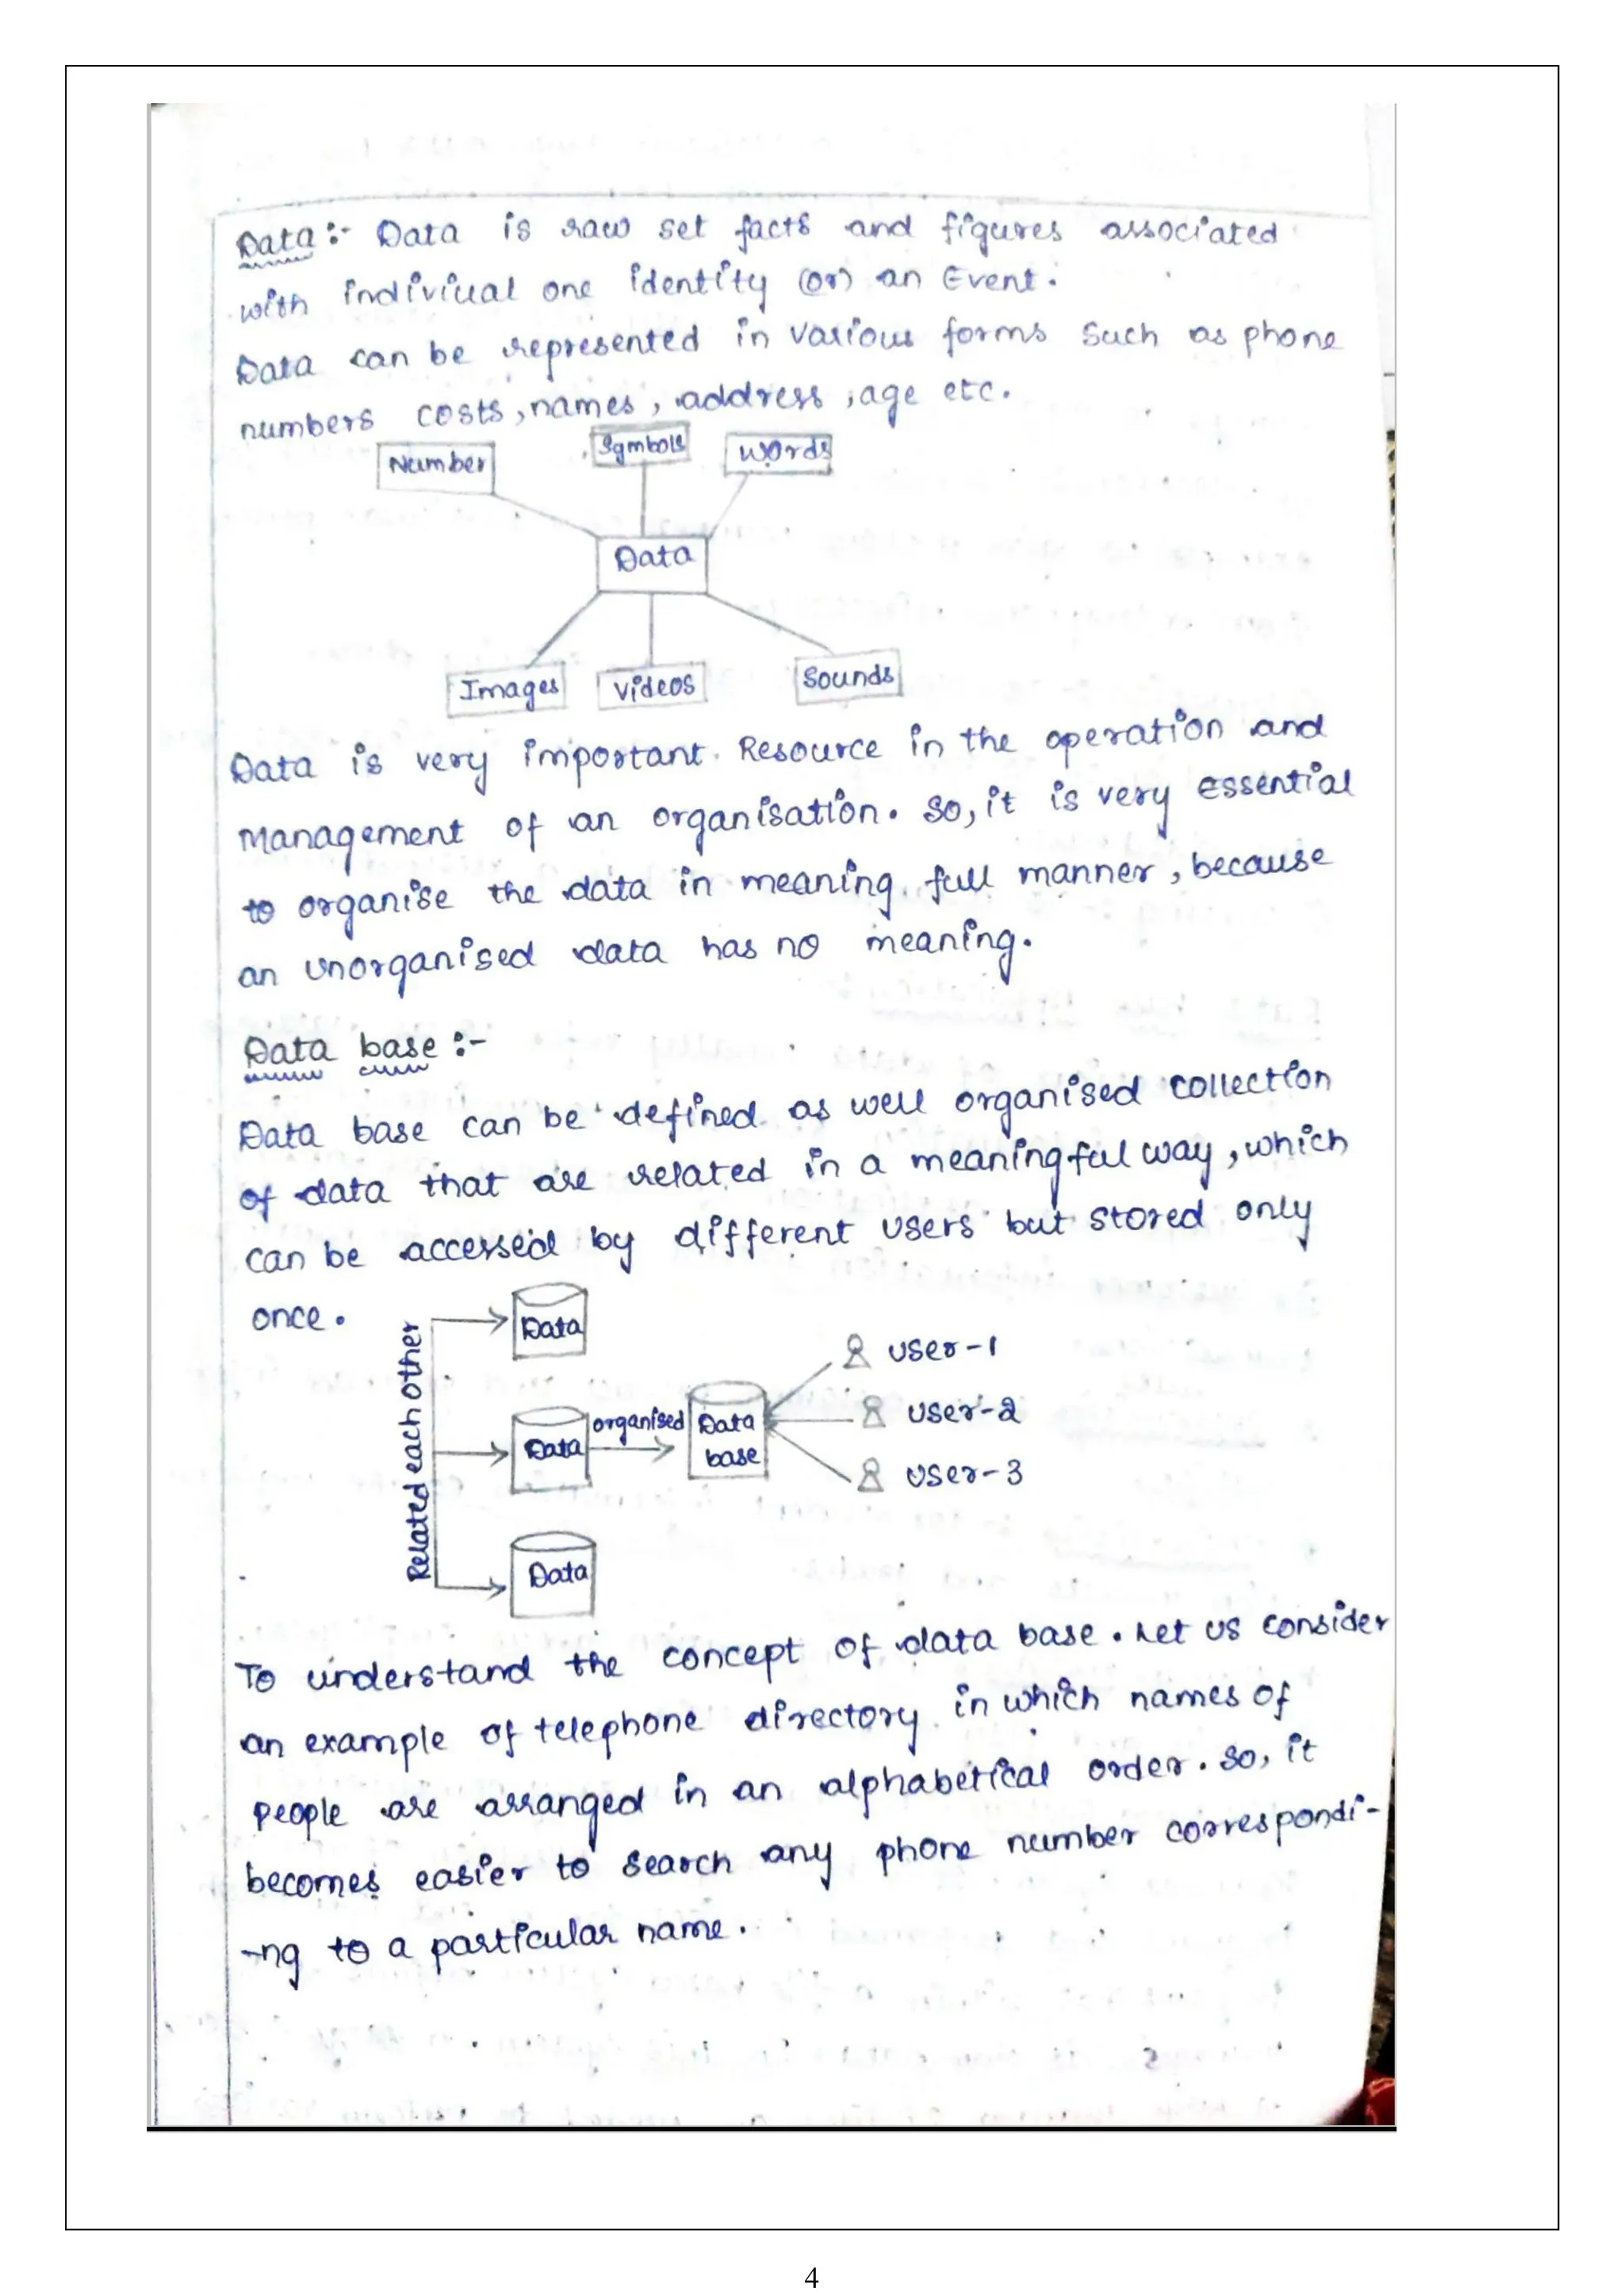 Data :- Data is raw set facts and figures associated
with indiviual one identity (or) an Event.
Data can be represented in various forms such as phone
numbers costs, names, address, age etc.
Number
Symbols
Words
Data
Images
Videos
Sounds
Data is very important Resource in the operation and
Management of an organisation. So, it is very Essential
to organise the data in meaning full manner, because
an unorganised data has no meaning.
Data base :-
Data base can be defined as well organised collection
of data that are related in a meaningful way, which
can be accessed by different users but stored only
once.
Related each other
Data
Data
Data
organised
Data
base
user-1
user-2
user-3
To understand the concept of data base. Let us consider
an example of telephone directory in which names of
people are arranged in an alphabetical order. So, it
becomes easier to search any phone number correspondi-
-ng to a particular name.
4